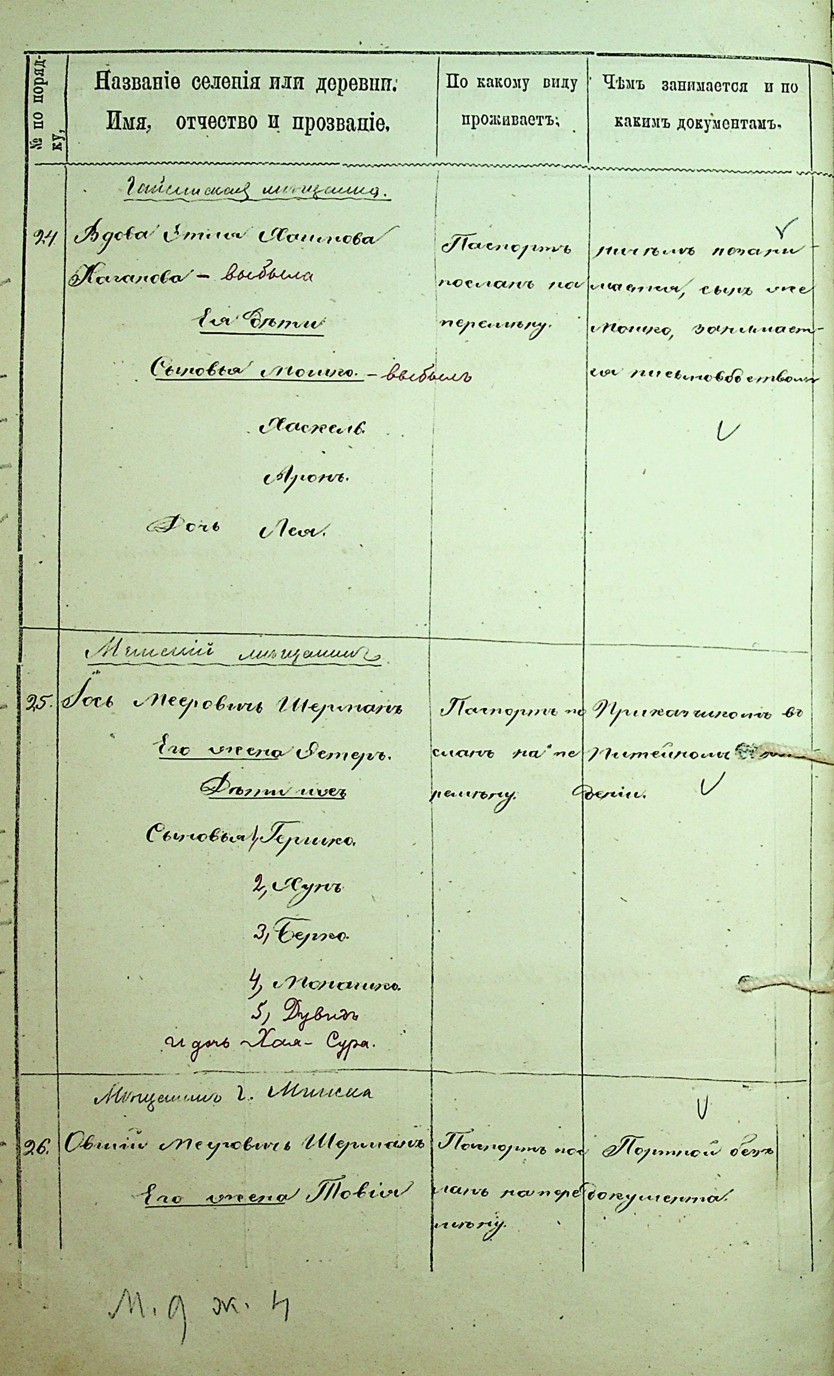 № по поряд-
ку,
Названіе селенія или деревни.
Имя, отчество и прозваніе.
По какому виду
проживаетъ;
Чѣмъ занимается и по
какимъ документамъ.
мѣщанка.
24
Вдова Этля Хаимова
Каганова – выбыла
Ея дѣти
Сыновья Мошко. – выбылъ
Хаскель
Аронъ.
Дочь Лея.
Паспортъ
посланъ на
перемѣну.
ничѣмъ незани-
мается, сынъ же
Мошко, занимает-
ся письмоводствомъ
Минскій мѣщанинъ
25.
Іось Мееровичъ Шерманъ
Его жена Эстеръ.
Дѣти ихъ
Сыновья 1, Гершко.
2, Хунъ
3, Берко.
4, Монашко.
5, Дувидъ
и дочь Хая-Сура.
Паспортъ по
сланъ на пе
ремѣну.
Прикащикомъ въ
питейномъ
деніи.
Мѣщанинъ г. Минска
26.
Овшій Меуровичъ Шерманъ
Его жена Товія
Паспортъ пос
ланъ на пере
мѣну.
Портной безъ
документа.
М. 9 ж. 4